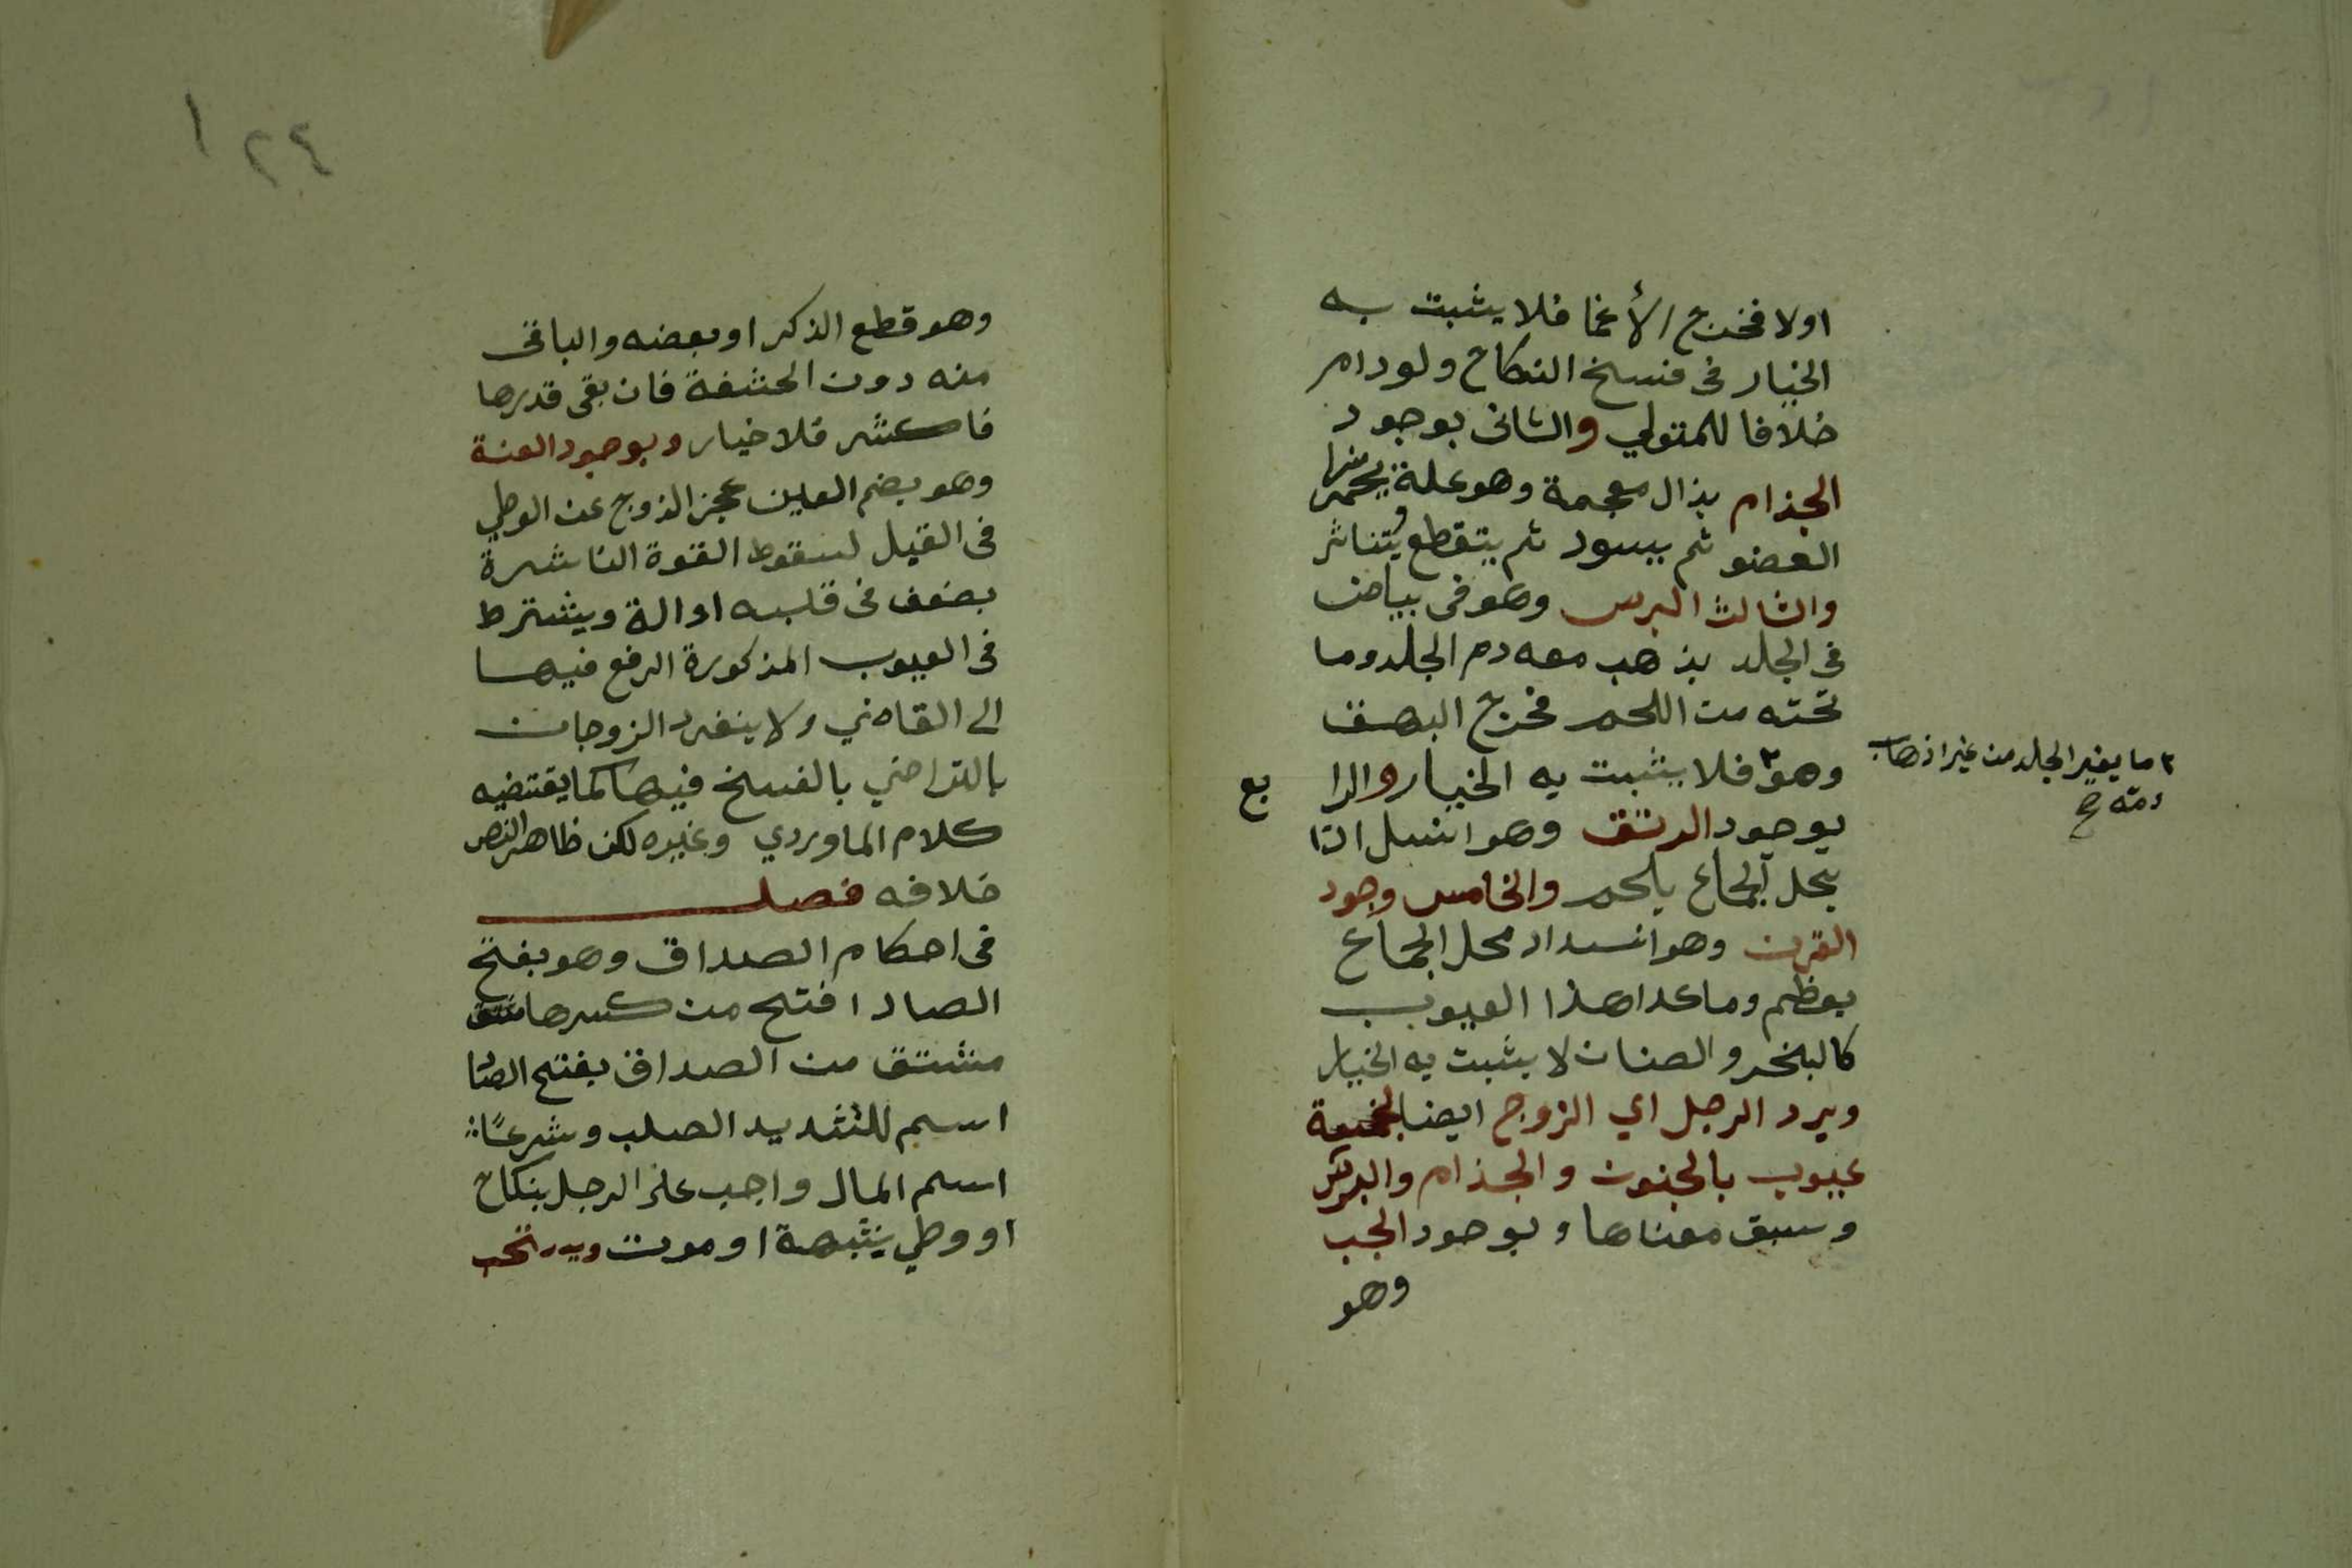 اولا فخرج الأغما فلا يثبت به
الخيار فى فسخ النكاح ولو دام
خلافا للمتولي والثانى بوجود
الجذام بذال معجمة وهو علة يحمر منها
العضو ثم يسود ثم يتقطع ويتناثر
والثالث البرس وهو فى بياض
فى الجلد يذهب معه دم الجلد وما
تحته من اللحم فخرج البهق
وهو٣ فلا يثبت به الخيار والرا
بع
٣ ما يغير الجلد من غير اذهاب
دمه صح
بوجود الرتق وهو انسدا
محل الجماع بلحم والخامس وجود
القرن وهو انسداد محل الجماع
بعظم وما عدا هذا العيوب
كالبخر والصنان لا يثبت به الخيار
ويرد الرجل اي الزوج ايضا بخمسة
عيوب بالجنون والجذام والبرص
وسبق معناها وبوجود الجب
وهو
١٢٤
وهو قطع الذكر او بعضه والباقى
منه دون الحشفة فان بقى قدرها
فاكثر فلا خيار وبوجود العنة
وهو بضم العين عجز الزوج عن الوطي
فى القبل لسقوط القوة الناشرة
بضعف فى قلبه او الة ويشترط
فى العيوب المذكورة الرفع فيها
الى القاضي ولا ينفرد الزوجان
بالتراضي بالفسخ فيها كما يقتضيه
كلام الماوردي وغيره لكن ظاهر النص
خلافه فصل
فى احكام الصداق وهو بفتح
الصاد افتح من كسرها
مشتق من الصداق بفتح الصاد
اسم للشديد الصلب وشرعًا
اسم المال واجب على الرجل بنكاح
او وطي بشبهة او موت ويستحب